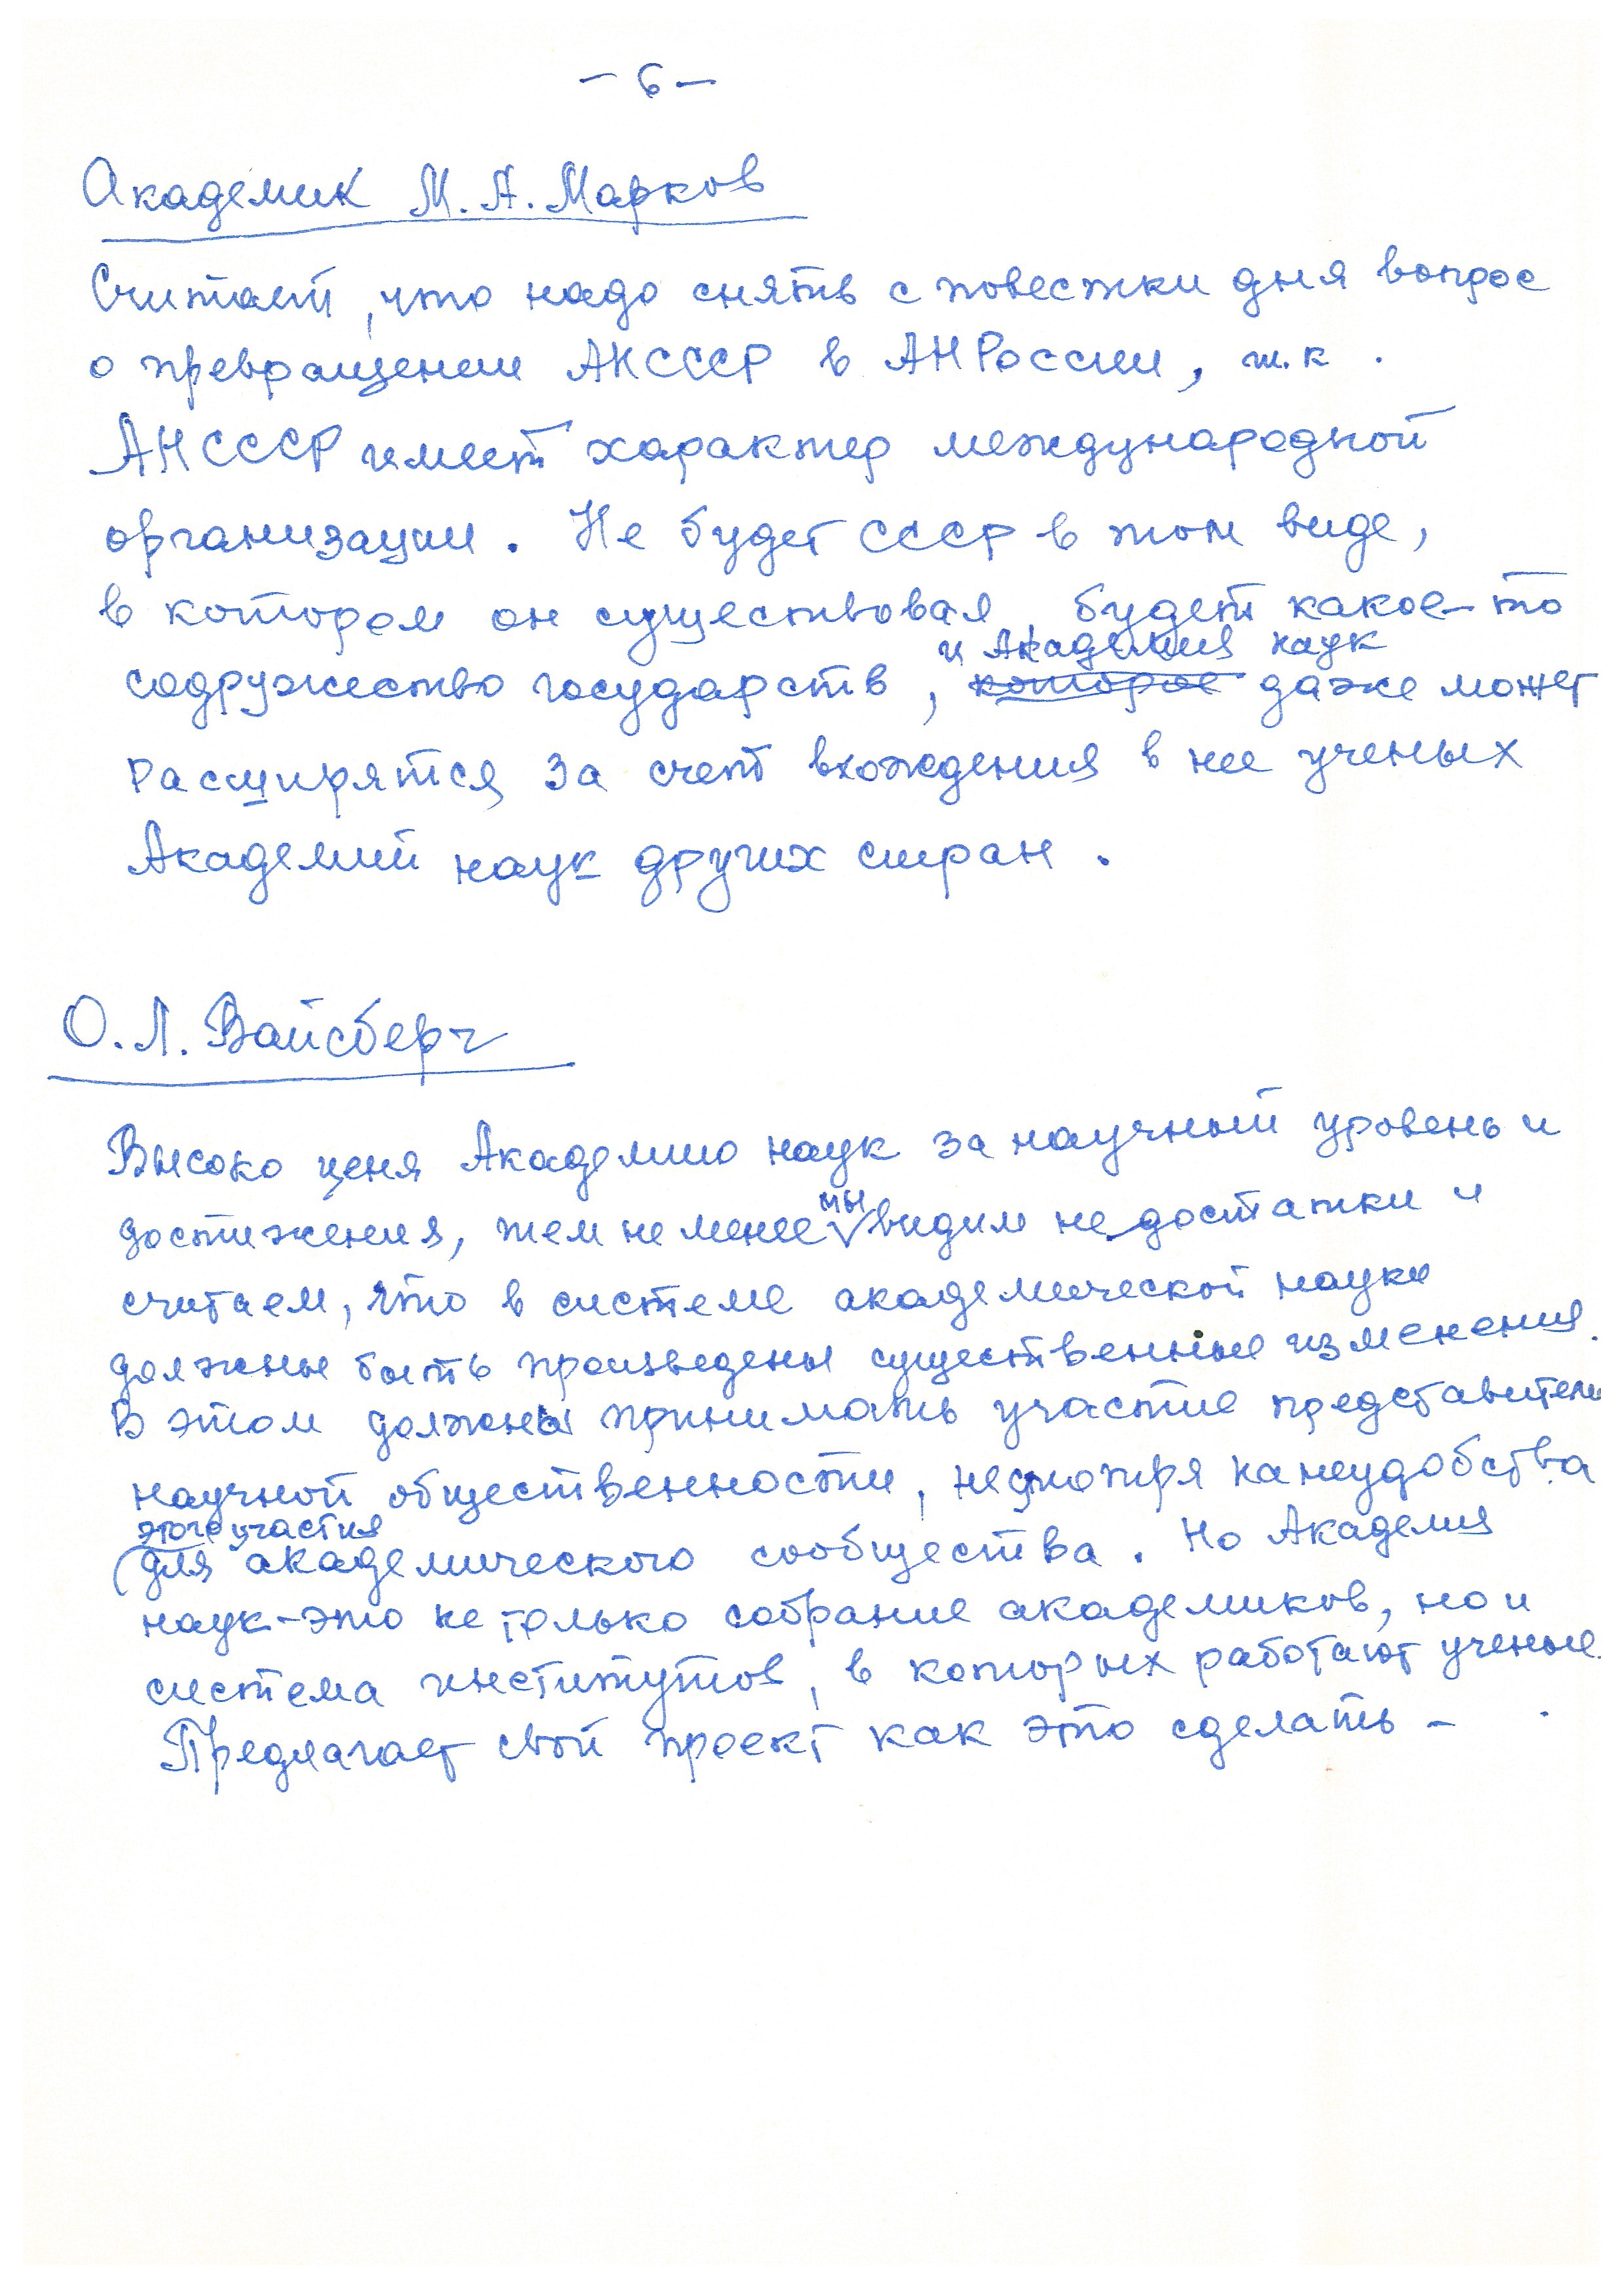 – 6 –
Академик М.А.Марков
Считает, что надо снять с повестки дня вопрос
о превращении АНСССР в АНРоссии, т.к.
АНСССР имеет характер международной
организации. Не будет СССР в том виде,
в котором он существовал, будет какое-то
и Академия наук
содружество государств, которое даже может
расширятся за счет вхождения в нее ученых
Академий наук других стран.
О.Л. Вайсберг
Высоко ценя Академию наук за научный уровень и
мы
достижения, тем не менее видим недостатки и
считаем, что в системе академической науки
должны быть произведены существенные изменения.
В этом должны принимать участие представители
научной общественности, несмотря на неудобства
этого участия
(для академического сообщества. Но Академия
наук – это не только собрание академиков, но и
система институтов, в которых работают ученые.
Предлагает свой проект как это сделать –